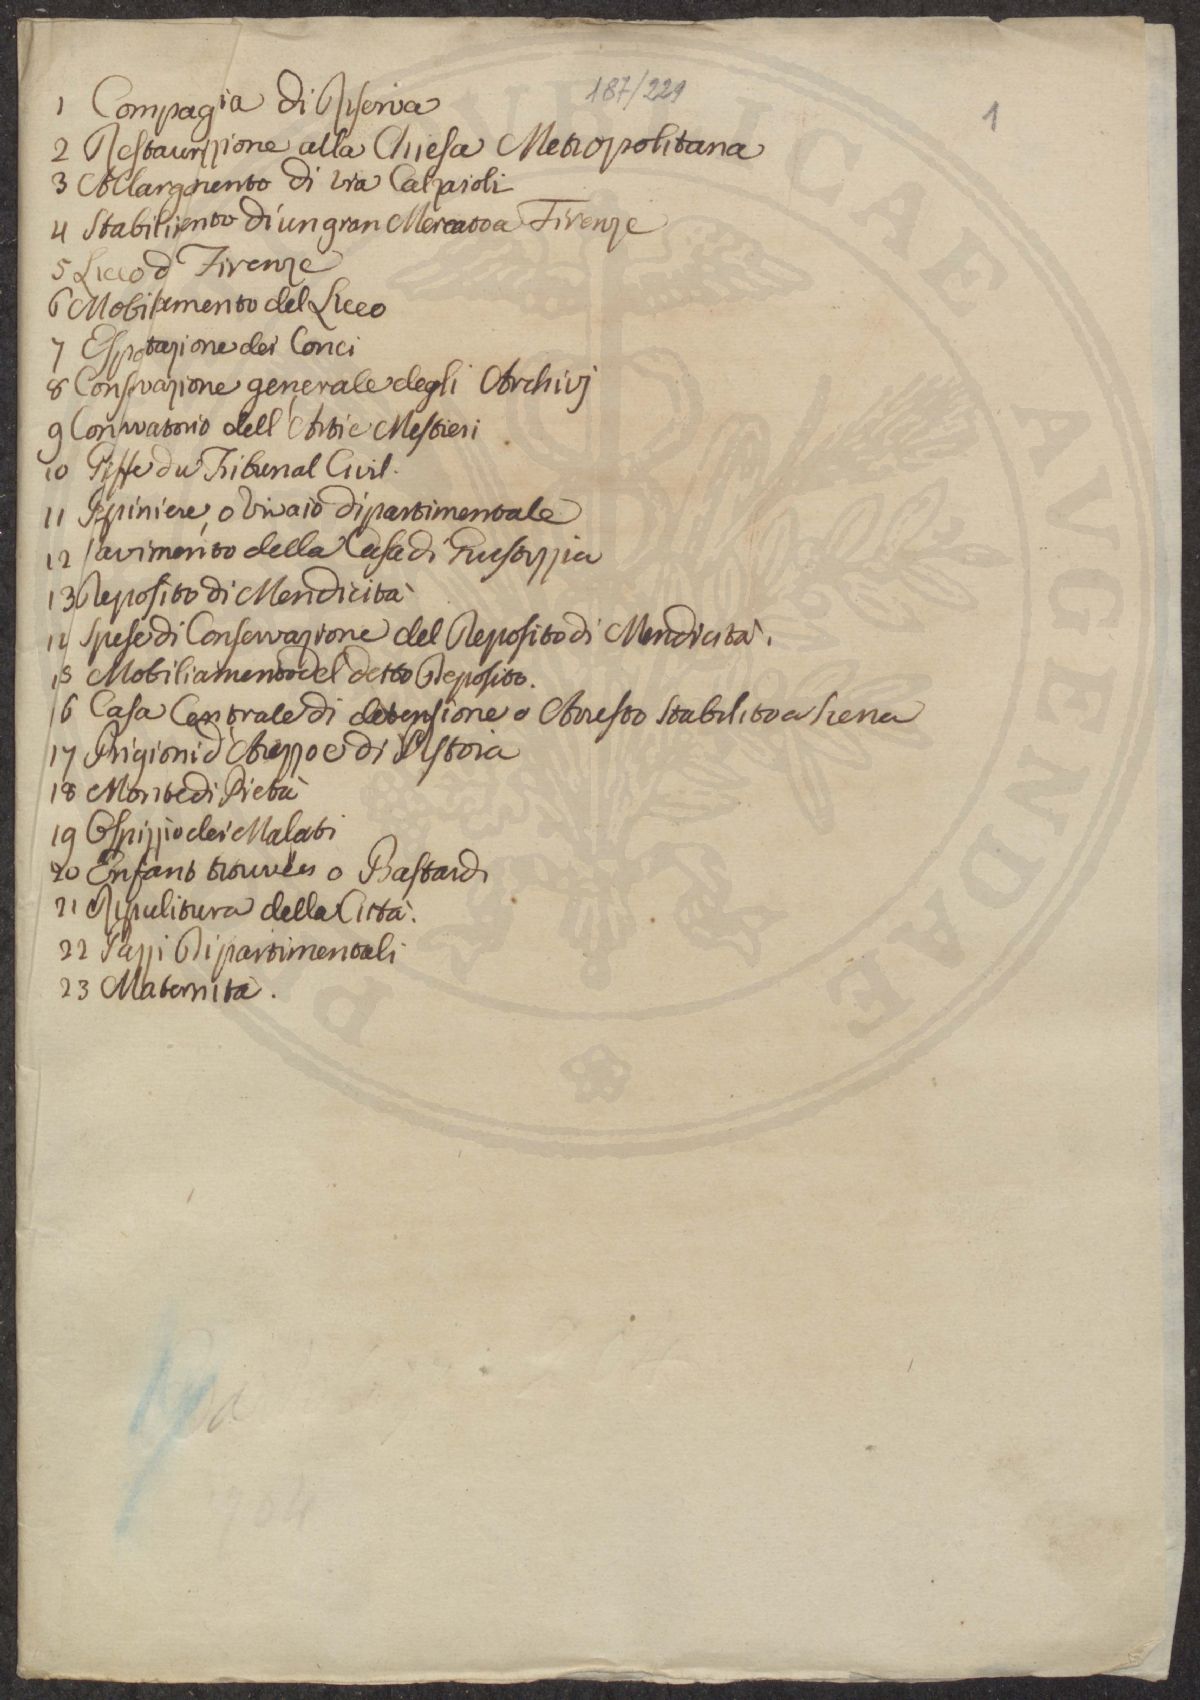 187/229
1
1 Compagia di Riserva
2 Restaurazzione alla Chiesa Metropolitana
3 Allargamento di Via Calzaioli
4 Stabilimento di un gran Mercato a Firenze
5 Liceo d Firenze
6 Mobiliamento del Liceo
7 dei Conci
8 Conservazione generale degli Archivj
9 Conservatorio dell'Arti e Mestieri
10 Greffe du Tribunal Civil.
11 Pepiniere, o Vivaio dipartimentale
12 Pavimento della Casa di
13 Reposito di Mendicità
14 Spese di Conservazione del Reposito di Mendicità.
15 Mobiliamento del detto Reposito.
16 Casa Centrale di detensione o Arresto stabilito a Siena
17 Prigioni d'Arezzo e di Pistoia
18 Monte di Pietà
19 Ospizzio dei Malati
20 Enfant trouvées o Bastardi
21 Ripulitura della Città.
22 Pazzi Dipartimentali
23 Maternità.
PVBLICAE AVGENDAE